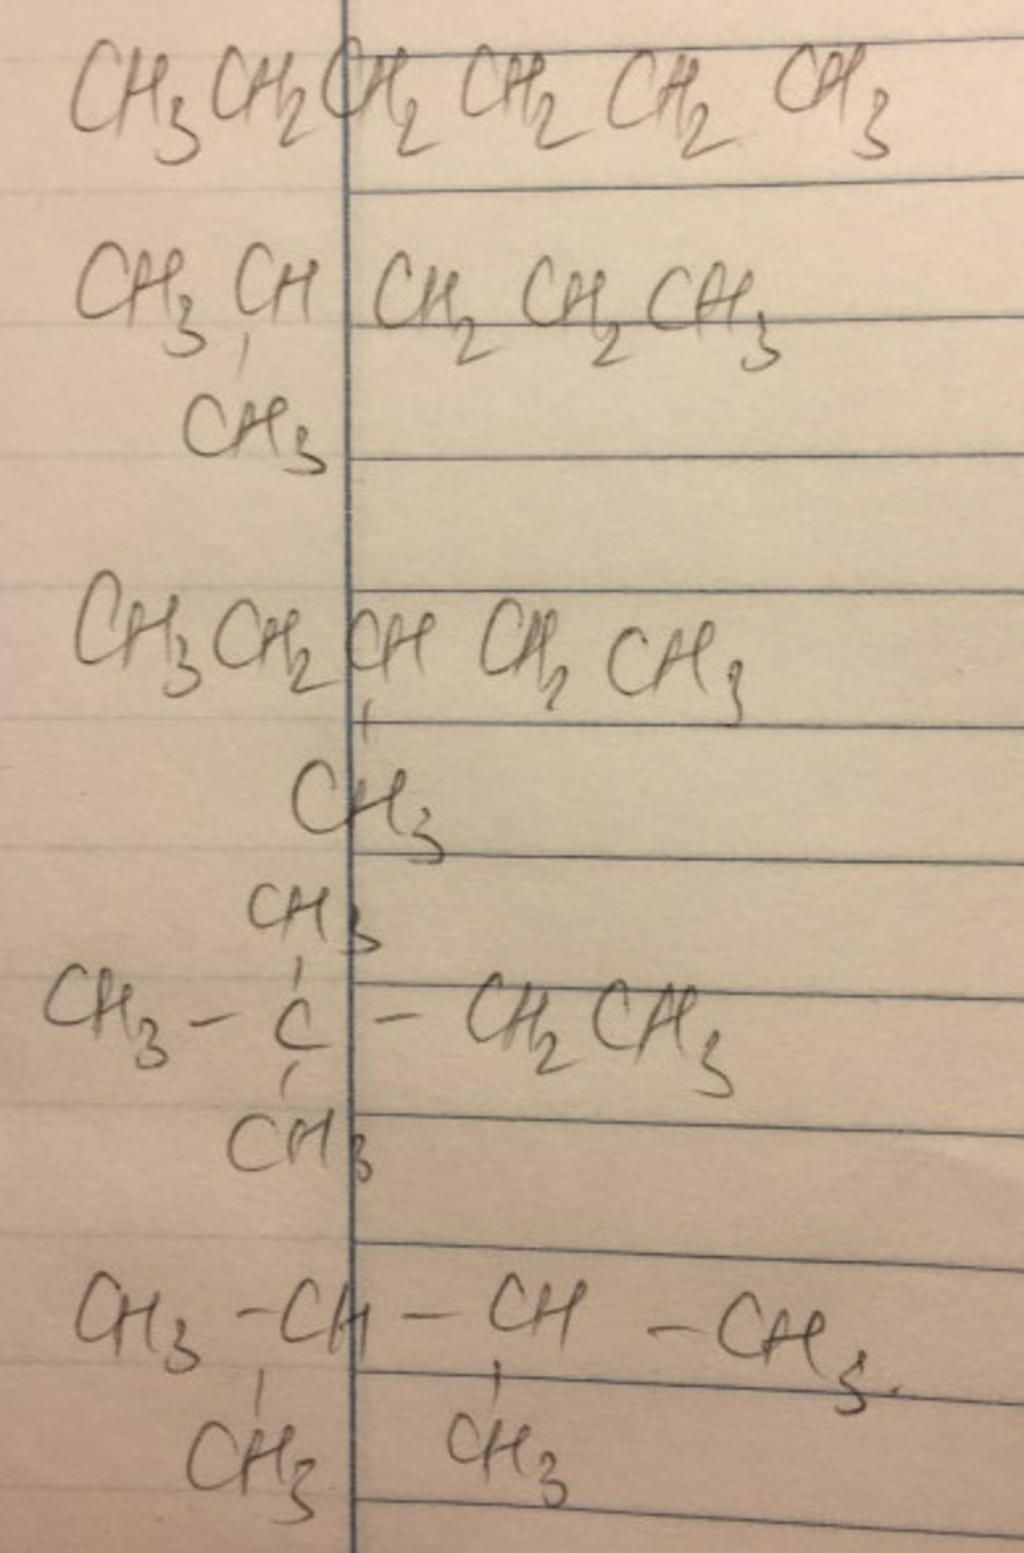 CH3 CH2 CH2 CH2 CH2 CH3
CH3 CH CH2 CH2 CH3
CH3
CH3 CH2 CH CH2 CH3
CH3
CH3
CH3 - C - CH2 CH3
CH3
CH3 - CH - CH - CH3
CH3 CH3